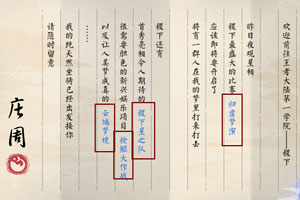 欢迎前往王者大陆第一学院——稷下
昨日夜观星相
稷下最盛大的比赛归虚梦演
应该即将要开启了
将有一群人在我的梦里打来打去
稷下还有
首秀亮相令人期待的稷下星之队
很需要胆色的新兴娱乐项目抢鲲大作战
以及让人美梦成真的云端梦境
……
我的纯天然坐骑已经出发接你
请随时留意
庄周